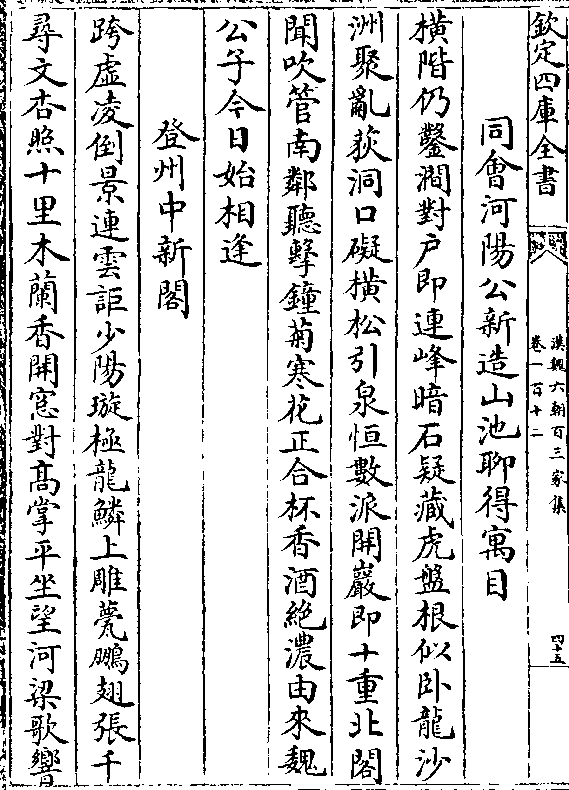 欽定四庫全書
漢魏六朝百三家集
卷一百十二
四十五
同會河陽公新造山池聊得寓目
橫階仍鑿澗對户即連峰暗石疑藏虎盤根似卧龍沙
洲聚亂荻洞口礙橫松引泉恒數派開巖即十重北閣
聞吹管南鄰聽擊鐘菊寒花正合杯香酒絶濃由來魏
公子今日始相逢
登州中新閣
跨虚凌倒景連雲詎少陽璇極龍鱗上雕甍鵬翅張千
尋文杏照十里木蘭香開窓對髙掌平坐望河梁歌響